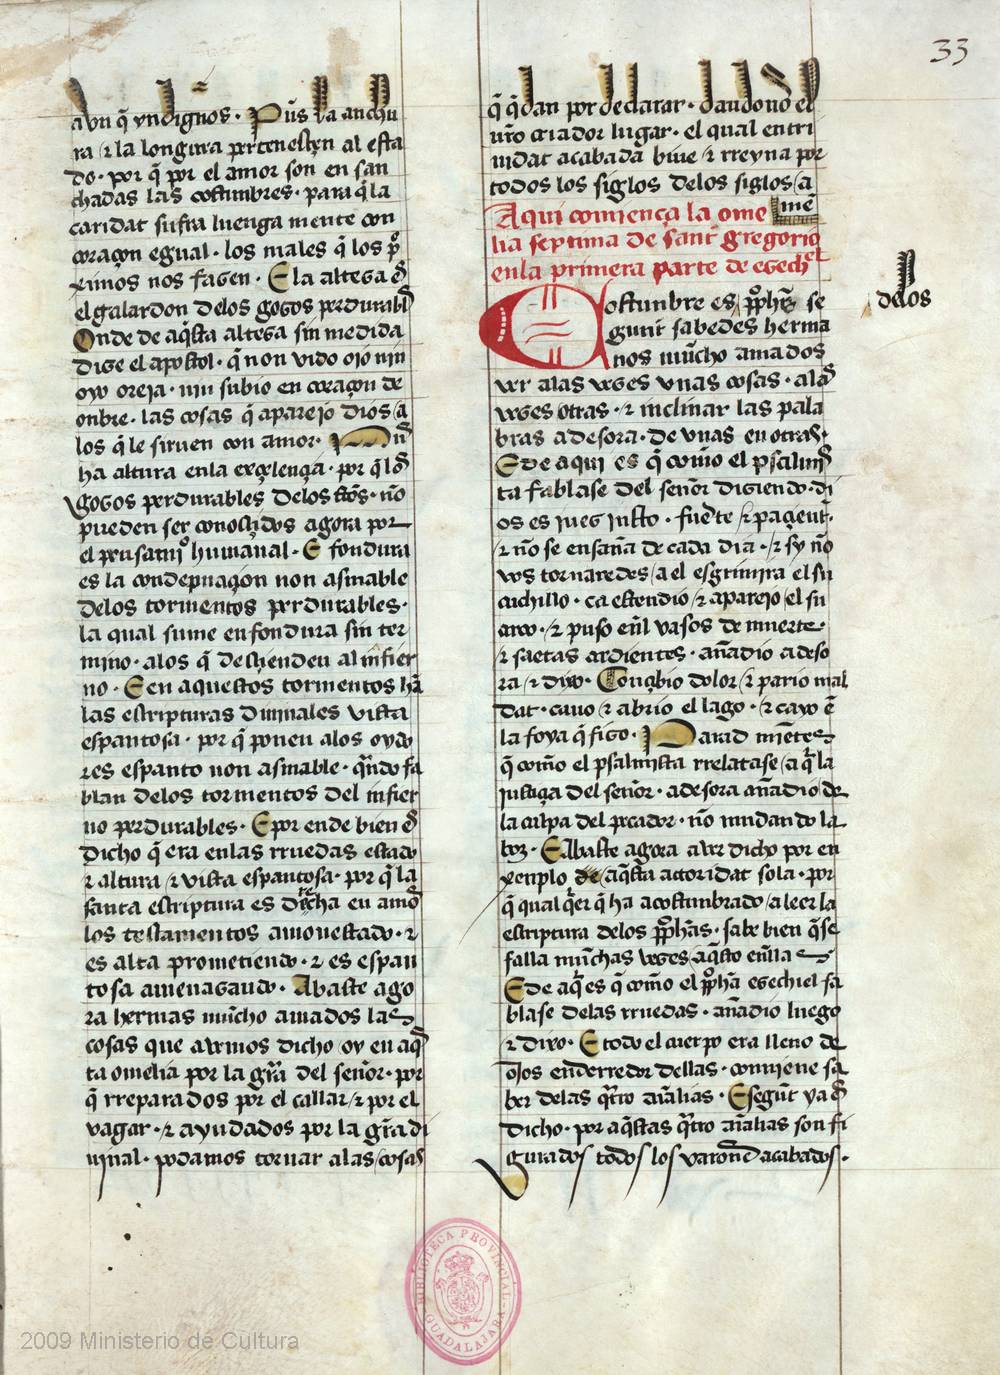 33
avn q̃ yndignos · Pũs la anchu
ra ⁊ la longura pertenesçen al esta
do · por q̃ por el amor son en san
chadas las costunbres · para q̃ la
caridat sufra luenga mente con
coraçon egual · los males q̃ los p̃
ximos nos fazen · E la alteza es
el galardon delos gozos perdurabl̃s
Onde de aq̃sta alteza sin medida
dize el apostol · q̃ non vido ojo nin
oyo oreja · nin subio en coraçon de
onbre · las cosas q̃ aparejo dios a
los q̃ le siruen con amor ·
ha altura enla exçelençia · por q̃ los
gozos perdurables delos stõs · nõ
pueden ser conosçidos agora por
el pensamiº humanal · E fondura
es la condepnaçion non asmable
delos tormentos perdurables ·
la qual sume en fondura sin ter
mino · alos q̃ desçienden al infier
no · E en aquestos tormentos hã
las escripturas diuinales vista
espantosa · por q̃ ponen alos oydo
res espanto non asmable · qñdo fa
blan delos tormentos del infier
no perdurables · E por ende bien es
dicho q̃ era enlas rruedas estado
⁊ altura ⁊ vista espantosa · por q̃ la
santa escriptura es derecha en amos
los testamentos amonestado · ⁊
es alta prometiendo · ⁊ es espan
tosa amenazando · Abaste ago
ra hermãs mũcho amados las
cosas que avemos dicho oy en aq̃s
ta omelia por la gr̃a del señor · por
q̃ rreparados por el callar ⁊ por el
vagar · ⁊ ayudados por la gr̃a di
uinal · podamos tornar alas cosas
q̃ q̃dan por declarar · dandonõ el
nr̃o criador lugar · el qual en tri
nidat acabada biue ⁊ rreyna por
todos los siglos delos siglos a
mẽ
Aqui comiença la ome
lia septima de sant gregorio
enla primera parte de ezechel
Costunbre es p̃phẽs se
delos
gunt sabedes herma
nos mũcho amados
ver alas vezes vnas cosas · alas
vezes otras · ⁊ inclinar las pala
bras adesora · de vnas en otras ·
E de aqui es q̃ como el psalmis
ta fablase del señor diziendo · di
os es juez justo · fuerte ⁊ paçent̃ ·
⁊ nõ se ensaña de cada dia · ⁊ sy nõ
vos tornaredes a el esgrimira el su
cuchillo · ca estendio ⁊ aparejo el su
arco · ⁊ puso en̄l vasos de muerte ·
⁊ saetas ardientes · añadio adeso
ra ⁊ dixo · Conçibio dolor ⁊ pario mal
dat · cauo ⁊ abrio el lago · ⁊ cayo ẽ
la foya q̃ fizo · Parad miẽtes
q̃ como el psalmista rrelatase aq̃lla
justiçia del señor · adesora añadio de
la culpa del pecador · nõ mudando la
boz · E Abaste agora aver dicho por en
xenplo de aq̃sta actoridat sola · por
q̃ qual q̃er q̃ ha acostumbrado a leer la
escriptura delos p̃phẽs · sabe bien q̃ se
falla mũchas vezes aq̃sto enlla
E de aq̃ es q̃ como el p̃pha ezechiel fa
blase delas rruedas · añadio luego
⁊ dixo · E todo el cuerpo era lleno de
ojos enderredor dellas · conuiene sa
ber delas q̃tro aĩalias · E segũt ya es
dicho · por aq̃stas q̃tro aĩalias son fi
gurados todos los varones acabados ·
BIBLIOTECA PROVINCIAL
GUADALAJARA
2009 Ministerio de Cultura